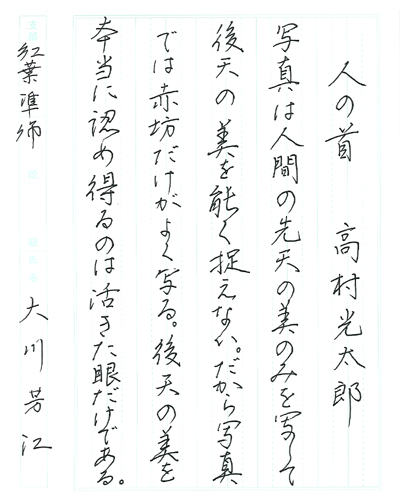 人の首　高村光太郎
写真は人間の先天の美のみを写して
後天の美を能く捉えない。だから写真
では赤坊だけがよく写る。後天の美を
本当に認め得るのは活きた眼だけである。
支部 紅葉準師 大川芳江